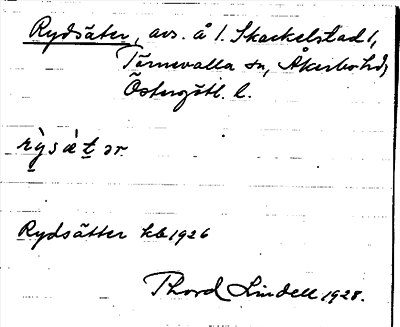 Rydsäter, avs. å 1. Skackelstad 1,
Törnevalla sn, Åkerbo hd,
Östergötl. l.
rỳsæ̀tər
Rydsätter kb 1926
Thord Lindell 1928.